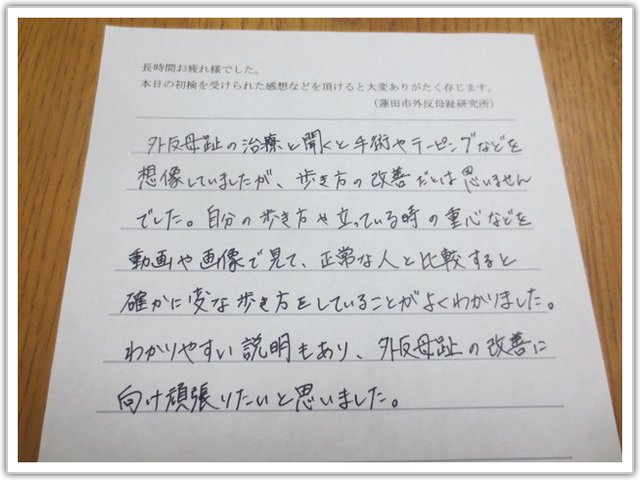 長時間お疲れ様でした。
本日の初検を受けられた感想などを頂けると大変ありがたく存じます。
(蓮田市外反母趾研究所)
外反母趾の治療と聞くと手術やテーピングなどを
想像していましたが、歩き方の改善だとは思いません
でした。自分の歩き方や立っている時の重心などを
動画や画像で見て、正常な人と比較すると
確かに変な歩き方をしていることがよくわかりました。
わかりやすい説明もあり、外反母趾の改善に
向け頑張りたいと思いました。